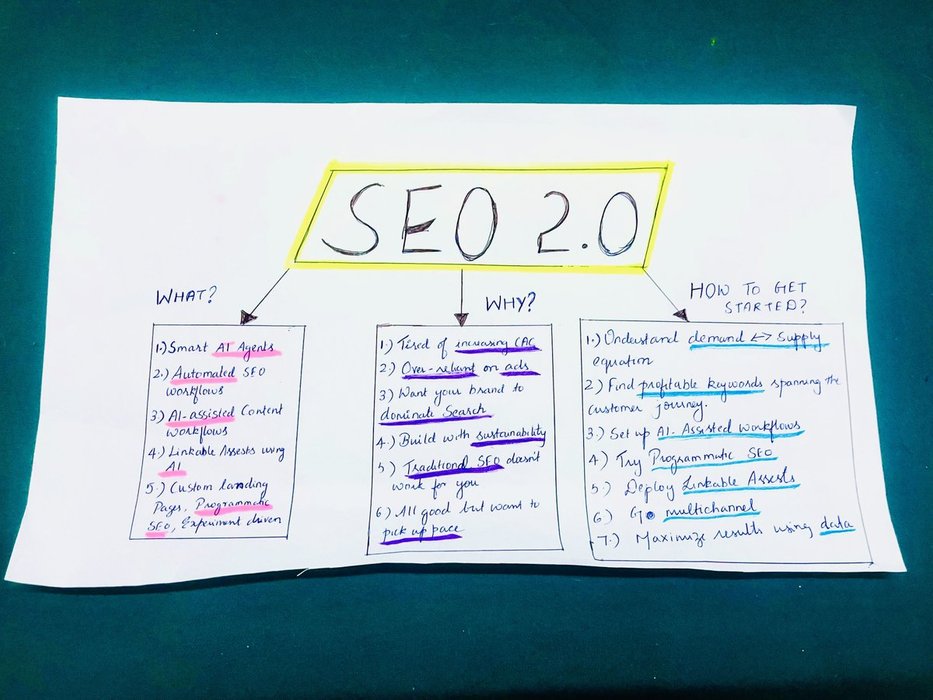 SEO 2.0
WHAT?
1.) Smart AI Agents
2.) Automated SEO
workflows
3) AI-assisted Content
workflows
4.) Linkable Assests using
AI
5.) Custom landing
Pages, Programmatic
SEO, Experiment driven
WHY?
1.) Tired of increasing CAC
2.) Over-reliant on ads
3) Want your brand to
dominate Search
4.) Build with sustainability
5.) Traditional SEO doesn't
work for you
6) All good but want to
pick up pace
HOW TO GET
STARTED?
1.) Understand demand ↔ Supply
equation
2) Find profitable keywords spanning the
customer journey.
3.) Set up AI-Assisted Workflows
4) Try Programmatic SEO
5.) Deploy Linkable Assests
6) Go multichannel
7.) Maximize results using data